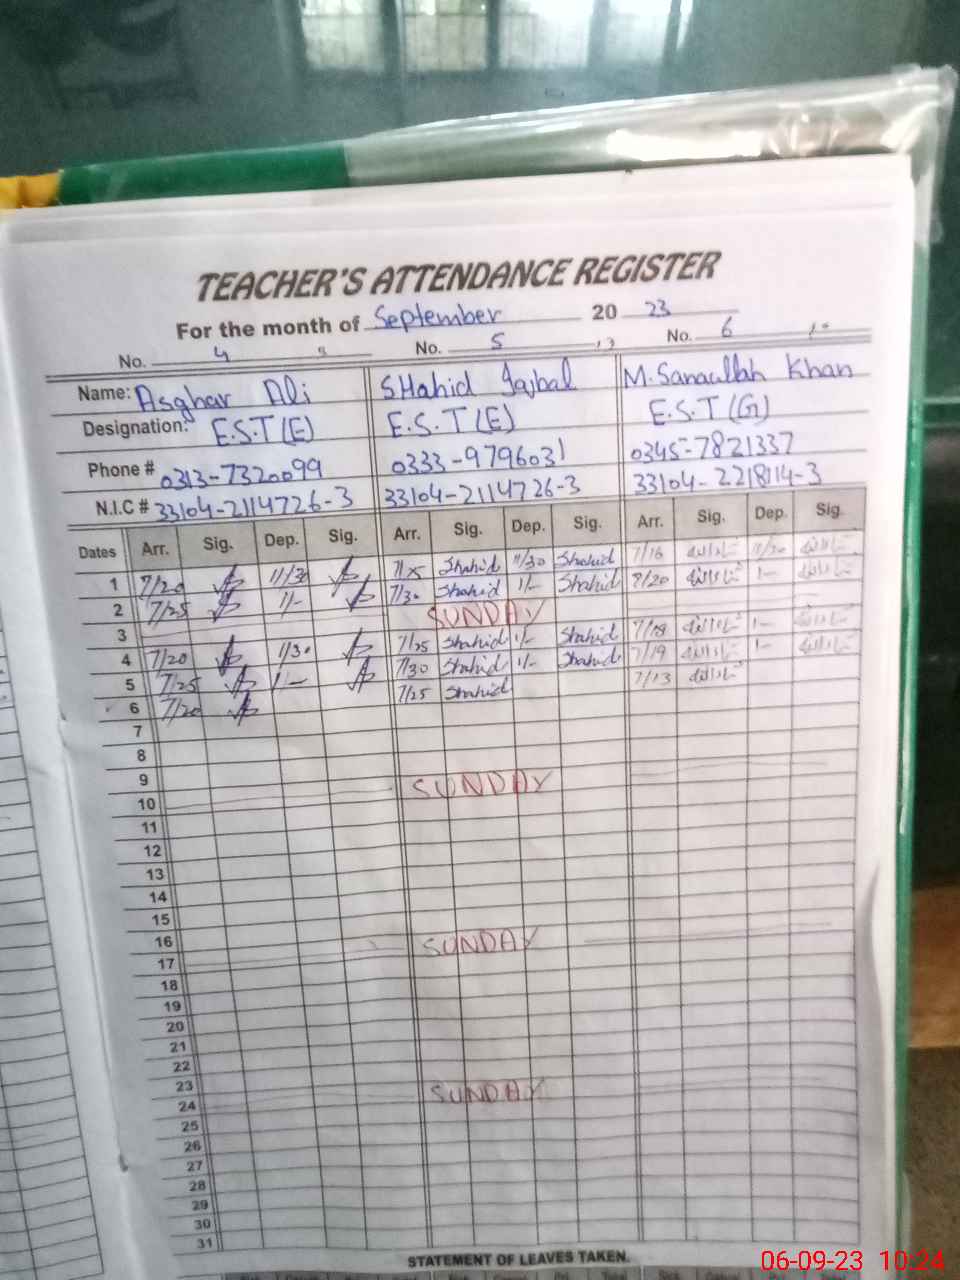 TEACHER'S ATTENDANCE REGISTER
For the month of September 20 23
No. 4 No. 5 No. 6
Name: Asghar Ali SHahid Iqbal M. Sanaullah Khan
Designation: E.S.T (E) E.S.T (E) E.S.T (G)
Phone # 0313-7320099 0333-9796031 0345-7821337
N.I.C # 33104-2114726-3 33104-2114726-3 33104-2218114-3
Dates Arr. Sig. Dep. Sig. Arr. Sig. Dep. Sig. Arr. Sig. Dep. Sig.
1 7/20 11/30 7/25 Shahid 11/30 Shahid 7/16 ثناءاللہ 11/30 ثناءاللہ
2 7/25 1/- 7/30 Shahid 1/- Shahid 7/20 ثناءاللہ 1- ثناءاللہ
3 SUNDAY
4 7/20 1/30 7/25 Shahid 1/- Shahid 7/18 ثناءاللہ 1- ثناءاللہ
5 7/25 1/- 7/30 Shahid 1/- Shahid 7/19 ثناءاللہ 1- ثناءاللہ
6 7/20 7/25 Shahid 7/13 ثناءاللہ
7
8
9
10 SUNDAY
11
12
13
14
15
16
17 SUNDAY
18
19
20
21
22
23
24 SUNDAY
25
26
27
28
29
30
31
STATEMENT OF LEAVES TAKEN.
06-09-23 10:24